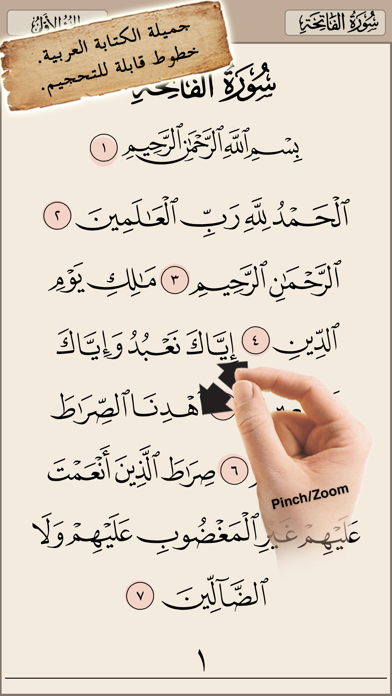 سُورَةُ الفَاتِحَةِ
جميلة الكتابة العربية.
خطوط قابلة للتحجيم.
سُورَةُ الفَاتِحَةِ
بِسْمِ ٱللَّهِ ٱلرَّحْمَٰنِ ٱلرَّحِيمِ ١
ٱلْحَمْدُ لِلَّهِ رَبِّ ٱلْعَٰلَمِينَ ٢
ٱلرَّحْمَٰنِ ٱلرَّحِيمِ ٣ مَٰلِكِ يَوْمِ
ٱلدِّينِ ٤ إِيَّاكَ نَعْبُدُ وَإِيَّاكَ
ٱهْدِنَا ٱلصِّرَٰطَ
٦ صِرَٰطَ ٱلَّذِينَ أَنْعَمْتَ
Pinch/Zoom
عَلَيْهِمْ غَيْرِ ٱلْمَغْضُوبِ عَلَيْهِمْ وَلَا
ٱلضَّآلِّينَ ٧
١